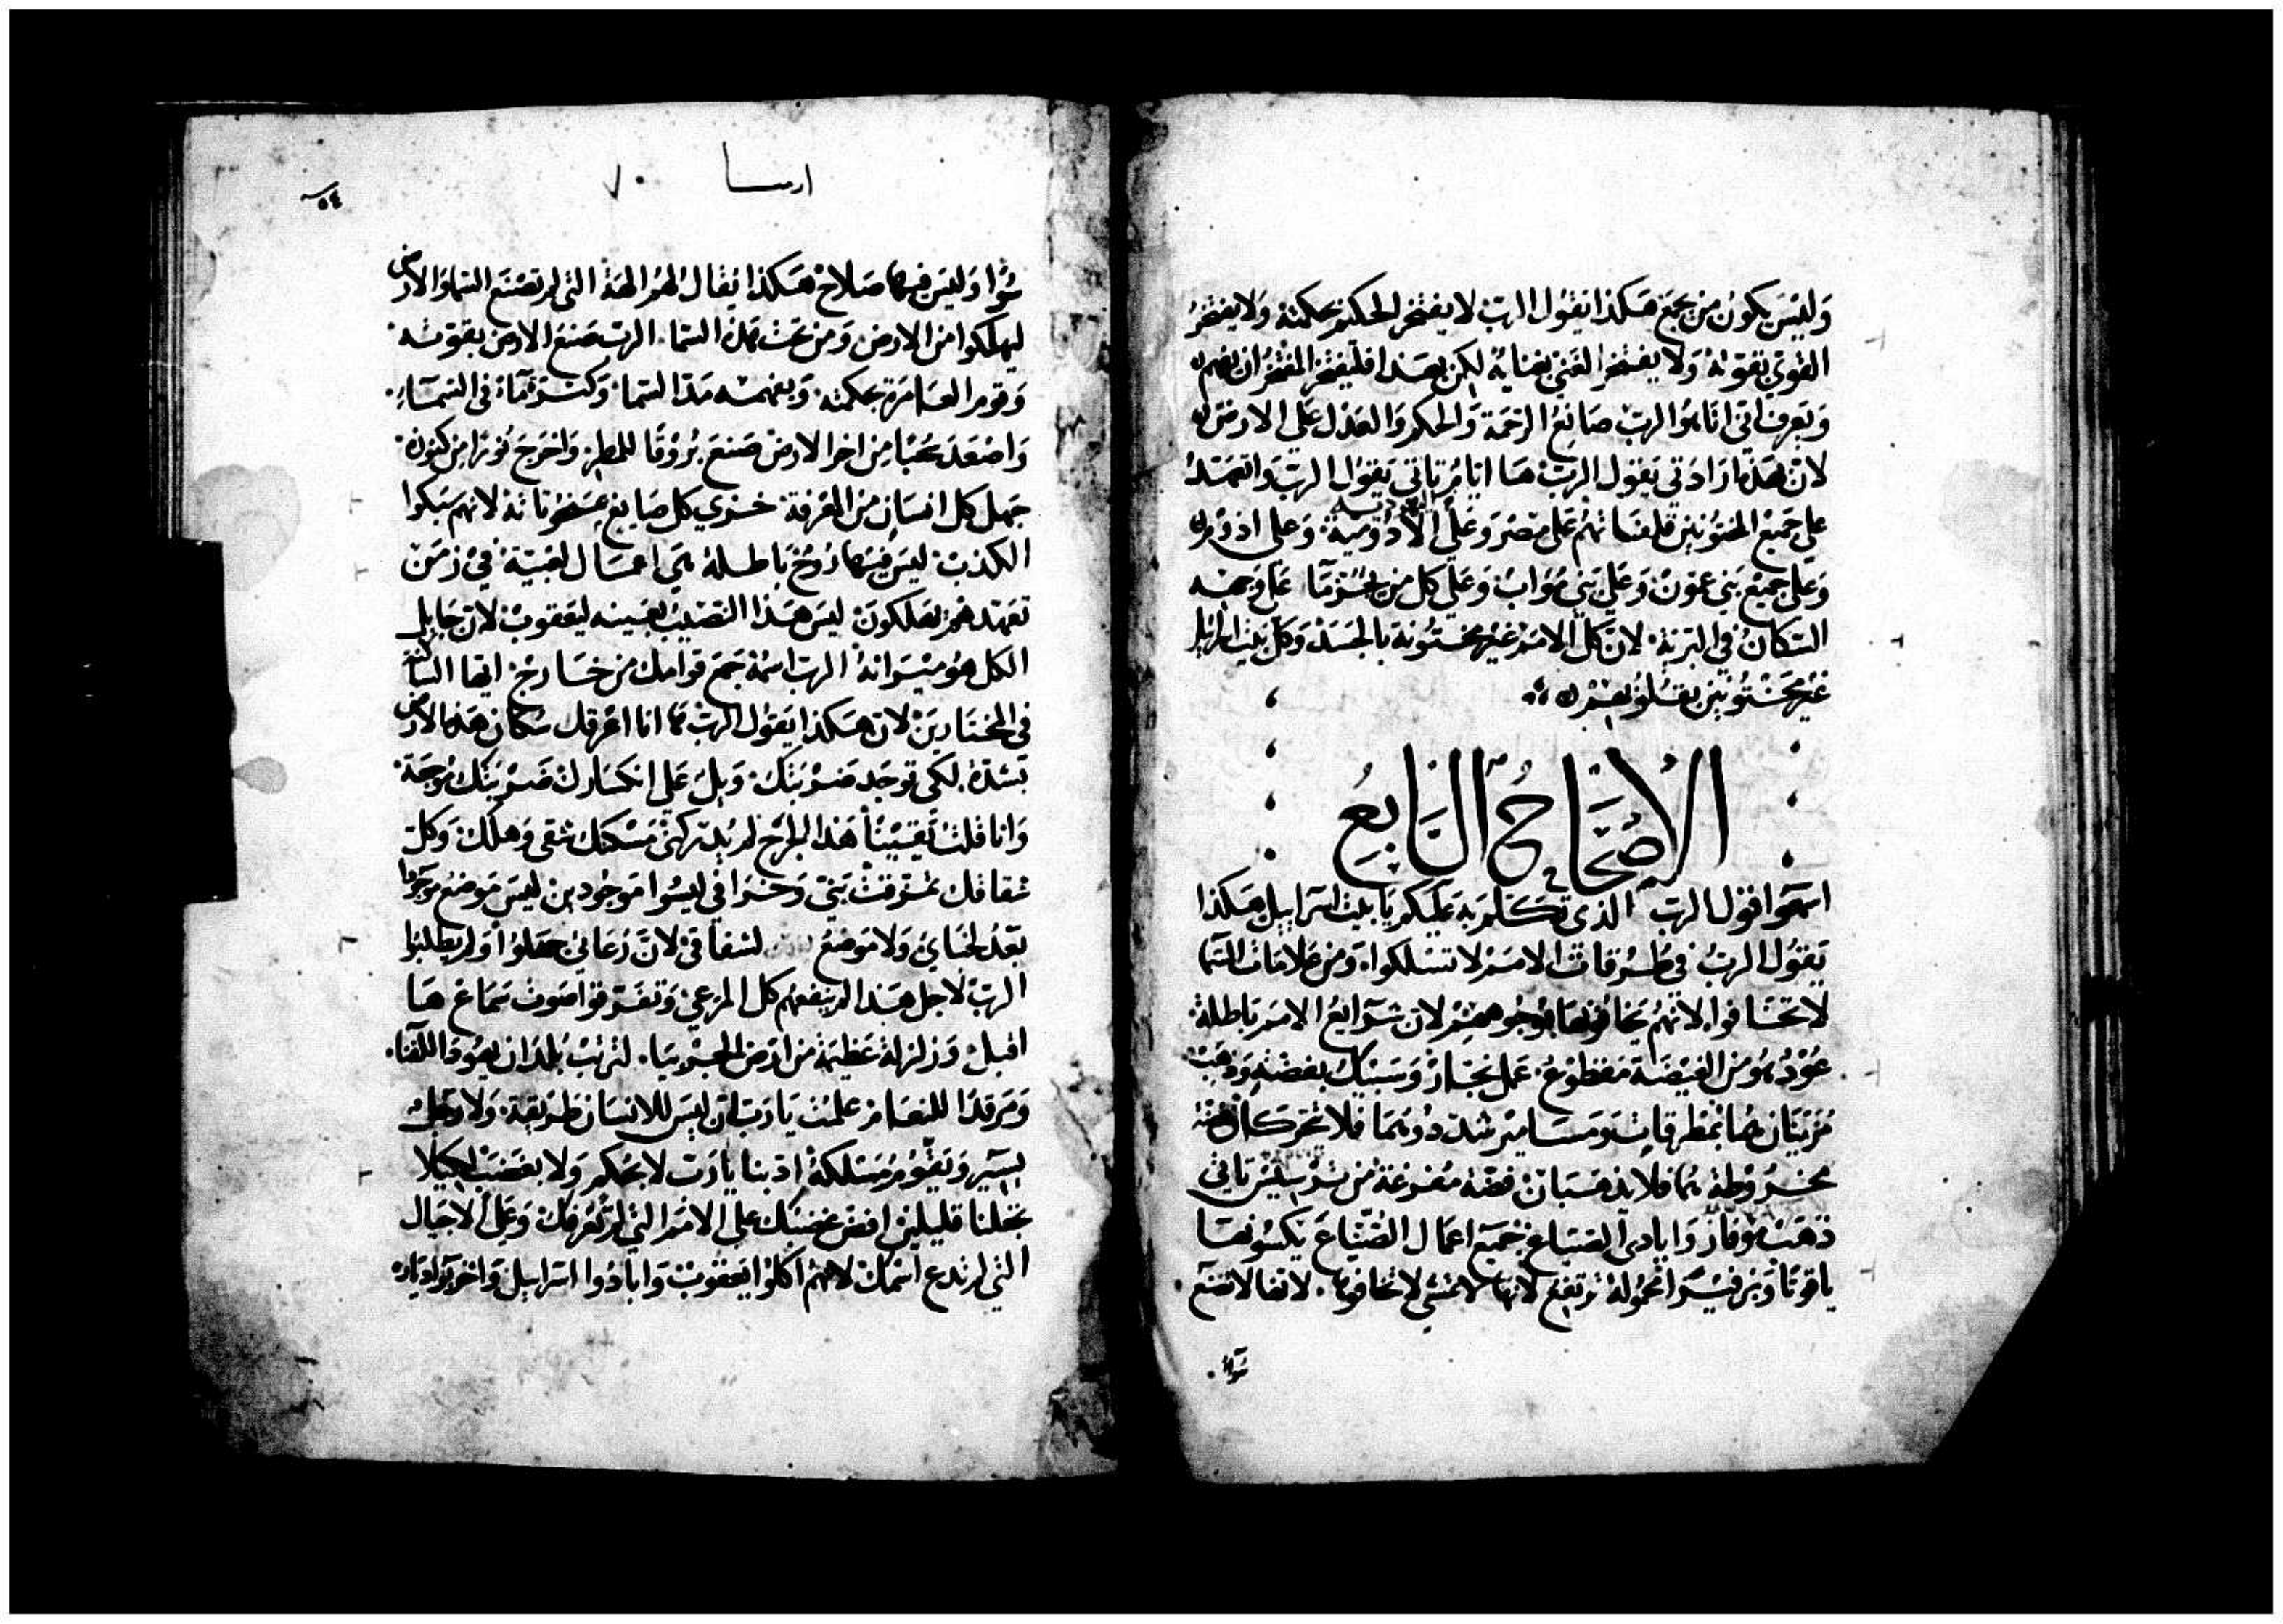 وَليْسَ يَكونُ مَن يجمَع هَكذا يَقُول الربّ لا يفتخر الحكيم بحكمته ولا يفتخرُ
القوي بقوته وَلا يفتخر الغني بغنايهُ لكن بهَذا فليفتخر المفتخرُ ان يفهم
وَيَعرف اني انا هُوَ الربّ صَانعُ الرّحمَة وَالحكم وَالعَدل علي الارض
لانّ هَذه ارَادَتي يَقول الربّ هَا ايامُ تاتي يَقول الربّ وَافتقدُ
علي جَميع المختونين قلفتهم عَلي مِصر وَعَلي الادُوميَة وَعلي ادُوم
وَعَلي جميْع بَني عمّونْ وَعَلي بَني مُوَابْ وَعَلي كل من علي وَجهه
السكان في البريّة لان كلّ الامَم غير مختونة بالجسَد وَكل بَيت اسرايل
غير مختونين بقلوبهم
الاصْحَاحُ السَّابِعُ
اسمعُوا قول الربّ الذي تكلم به عَليكم يَا بيت اسرَاييل هَكذا
يَقُول الربُ في طُرُقات الامَم لا تسلكوا، وَمن عَلامَات السّما
لا تخافوا لانهُم يخافونها بوجُوههم لان شرايعُ الامَم بَاطلة
عُوْدُ هُو من الغَيضَة مقطوعُ عَمل نجّار وَسَبيك بفضةٍ وَذهبْ
مُزيَّنان هُما بمطرقات وَمسَامير فلا تتحرك
فضة من ترسيسْ تاتي
ذهَب مُوفاز وَايادي الصيّاغ جَميع اعمَال الصُنّاع يَكسُونهَا
ياقوتا محمولة ترتفع لانها لا تمشي لا تخافوها، لانها لا تصنع
سُوًا
ارميا ٧٠
٥٤
سُوًّا وَليسَ فيهَا صَلاحْ هَكذا يُقال لهُم الهَة التي لم تصْنَع السّما وَالارض
ليهلكوا من الارض وَمن تحت هَذه السّما. الربّ صَنع الارض بقوته
وَقوم العَامرَة بحكمته. وَبفهمه مَدّ السّما وَكثرة مَآء في السّمآء.
وَاصْعَدَ سُحبًا مِن اخر الارض صَنعَ بُرُوقًا للمطر وَاخرَجَ نُورا مِن كنوزه
جَهل كل انسَان من المَعْرفة خَزي كل صَايغ لانهم سَبكوا
الكذبْ ليسَ فيهَا رُوحْ بَاطلة هي اعمَال في زمَنْ
تعهّدهم يهلكونَ ليسَ هَذا النّصيْب بعينه ليَعقوبْ لان جَابل
الكل هُو ميرَاثهُ الربّ اسْمهُ جَمَع قوامك من خَارجْ ايها السّاكن
في المختارينْ لان هَكذا يَقول الربّ هَا انا اعرقل سُكان هَذه الارض
بشدّة لكي تُوجَد ضربتك. وَيل عَلي انكسَارك ضربتك مُوجعَة
وَانا قلت يَقيْنًا هَذا الجرْح لم يدركني مَسْكنك شقي وَهلك. وَكل
شقاقك تمزّقتْ بَنيّ وَخرَافي ليسُوا مَوجُودين ليسَ مَوضع مَوجُودا
بَعدُ لخبايْ وَلا مَوضعُ لشقاقي لانَّ رُعَاتي جهلوا وَلم يطلبُوا
الربّ لاجل هَذا لم يفهم كل المرعي وَتفرّقوا صَوت سَمَاع هَا
اقبلْ وَزلزلة عَظيمَة من ارَض الجربيَا. لترتبْ بُلدَان يَهُوذا للفنا.
وَمَرقدا للنعَام علمْت يَا رَب ان ليسَ للانسَان طرَيقهُ وَلا رَجل
يسير وَيَقُومُ مَسْلكهُ ادّبنا يَا رَب لا بحُكم وَلا بغضَبْ لكيلا
تجعلنا قليلينْ افض غضبَك علي الامَم التي لم تعْرفكْ وَعَلي الاجيَال
التي لم تدع اسْمك لانهُم اكلوا يَعقوبْ وَابادُوا اسرَاييل وَاخربوا ديَاره